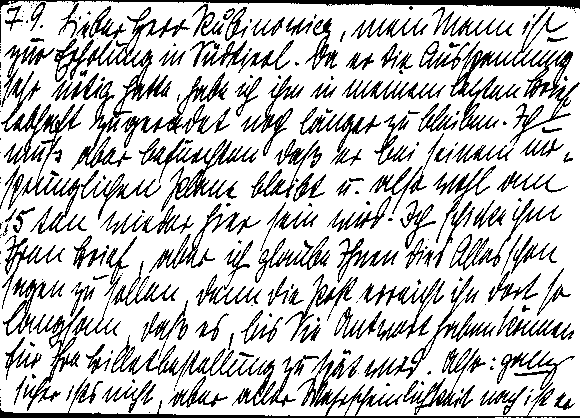 7.9. Lieber Herr Rubinowicz, mein Mann ist
zur Erholung in Südtirol. Da er die Ausspannung
sehr nötig hatte, habe ich ihm in meinem letzten Brief
lebhaft zugeredet noch länger zu bleiben. Ich
muss aber befürchten daß er bei seinem ur-
sprünglichen Plane bleibt u. also wohl am
15ten wieder hier sein wird. Ich schicke ihm
Ihren Brief, aber ich glaube Ihnen dies Alles schon
sagen zu sollen, denn die Post erreicht ihn dort so
langsam, daß es, bis Sie Antwort haben können
für Ihre Billetbestellung zu spät wird. Also: ganz
sicher ists nicht, aber aller Wahrscheinlichkeit nach ist er